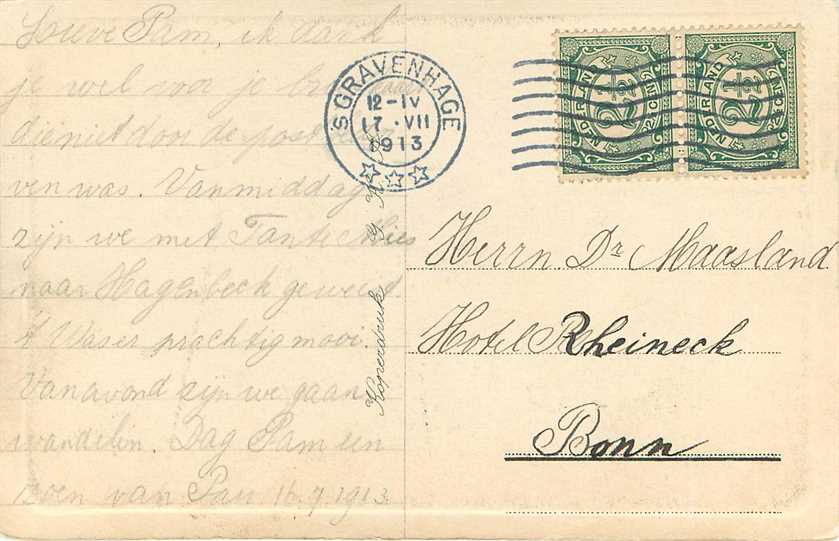 Lieve Pam, ik dank
je wel voor je
die niet door de post
ven was. Van middag
zijn we met Tante Mies
naar Hagenbeck geweest
't Was er prachtig mooi.
Van avond zijn we gaan
wandelen. Dag Pam een
zoen van Pau 16.7.1913
Koperdruk
'SGRAVENHAGE
12-IV
17.VII
1913
NEDERLAND 2½ CENT 2½
NEDERLAND 2½ CENT 2½
Herrn Dr Maasland
Hotel Rheineck
Bonn